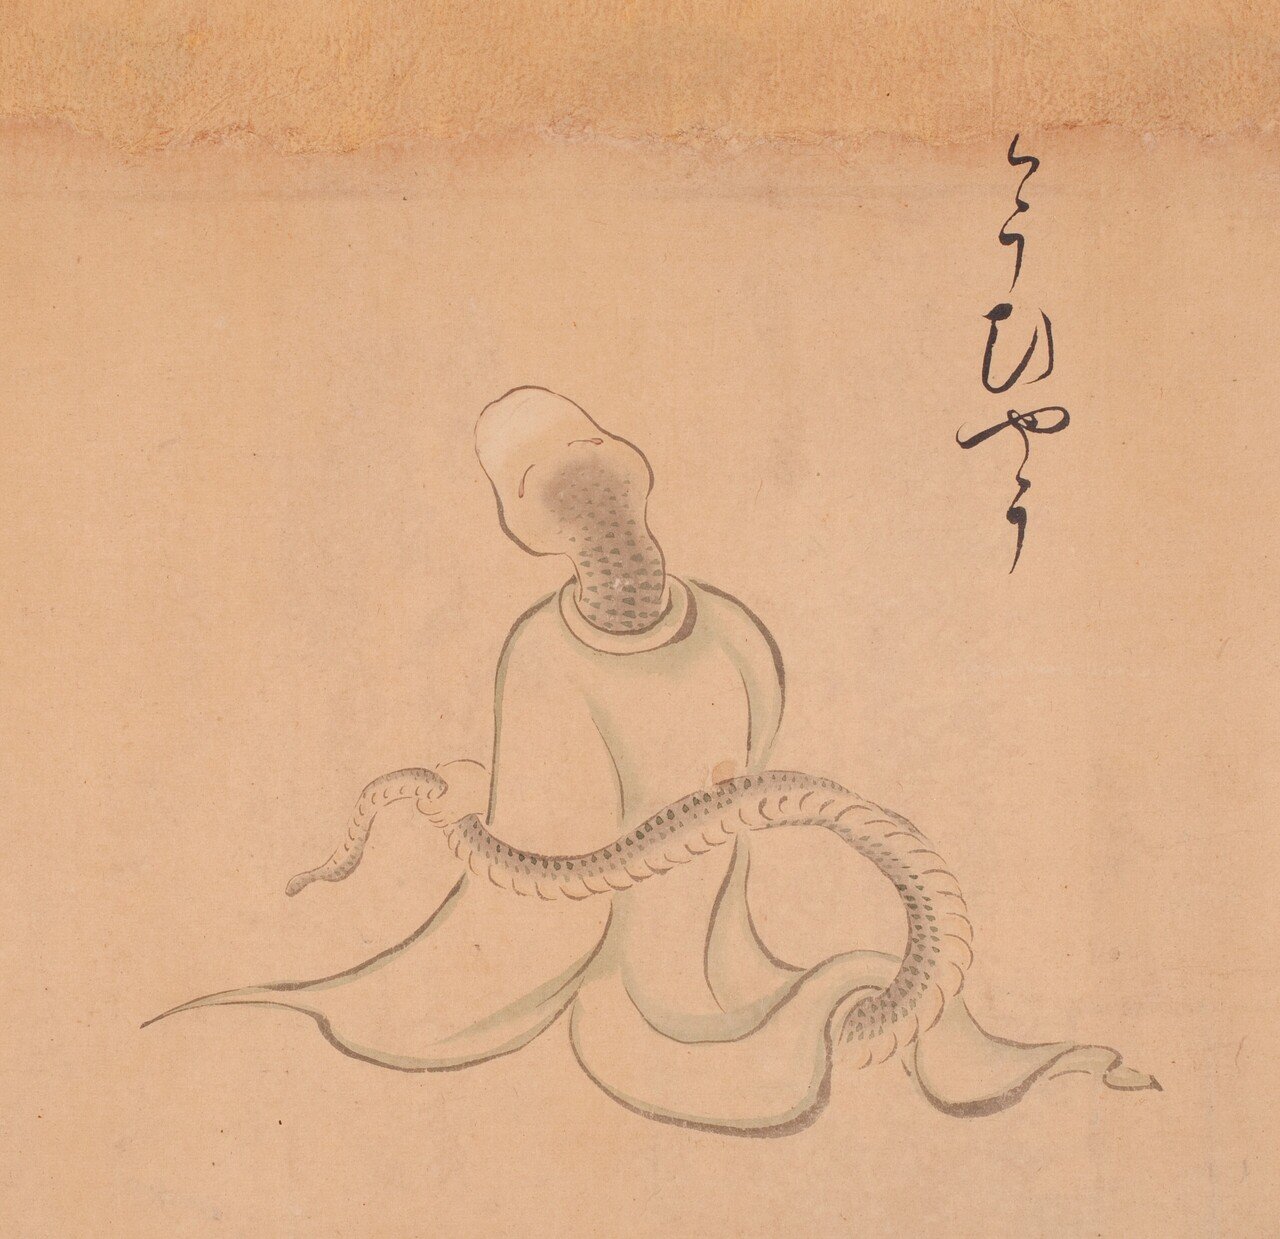 へうひやう